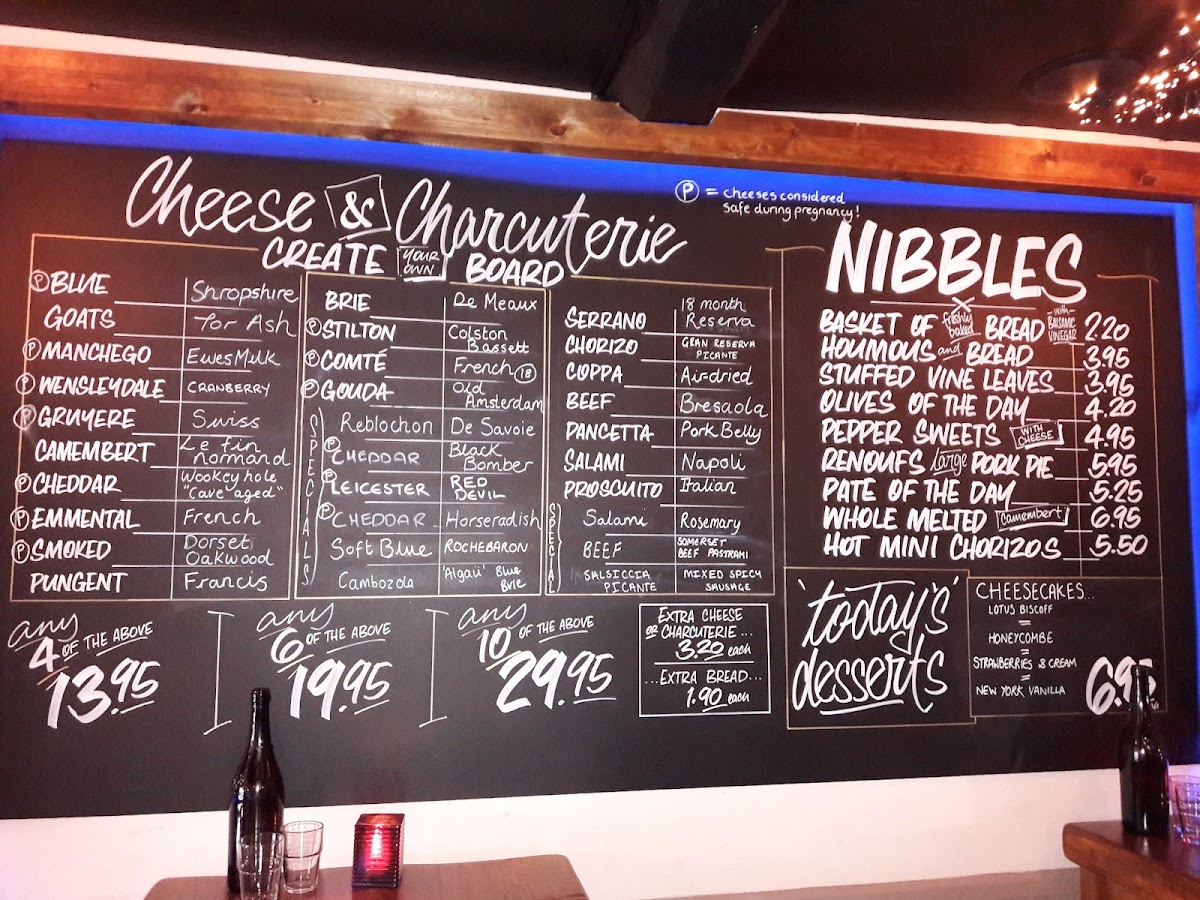 Cheese & Charcuterie
CREATE YOUR OWN BOARD
P = cheeses considered
safe during pregnancy!
P BLUE Shropshire
GOATS Tor Ash
P MANCHEGO Ewes Mulk
P WENSLEYDALE CRANBERRY
P GRUYERE Swiss
CAMEMBERT Le fin normand
P CHEDDAR Wookey hole "Cave aged"
P EMMENTAL French
P SMOKED Dorset Oakwood
PUNGENT Francis
BRIE De Meaux
P STILTON Colston Bassett
P COMTÉ French 18
P GOUDA Old Amsterdam
SPECIALS
Reblochon De Savoie
P CHEDDAR Black Bomber
P LEICESTER RED DEVIL
P CHEDDAR Horseradish
Soft Blue ROCHEBARON
Cambozola 'Algaü' Blue Brie
SERRANO 18 month Reserva
CHORIZO GRAN RESERVA PICANTE
COPPA Airdried
BEEF Bresaola
PANCETTA Pork Belly
SALAMI Napoli
PROSCUITO Italian
SPECIAL
Salami Rosemary
BEEF SOMERSET BEEF PASTRAMI
SALSICCIA PICANTE MIXED SPICY SAUSAGE
any 4 OF THE ABOVE
13.95
any 6 OF THE ABOVE
19.95
any 10 OF THE ABOVE
29.95
EXTRA CHEESE
OR CHARCUTERIE...
3.20 each
...EXTRA BREAD...
1.90 each
NIBBLES
BASKET OF freshly baked BREAD with BALSAMIC VINEGAR 2.20
HOUMOUS and BREAD 3.95
STUFFED VINE LEAVES 3.95
OLIVES OF THE DAY 4.20
PEPPER SWEETS WITH CHEESE 4.95
RENOUFS large PORK PIE 5.95
PATE OF THE DAY 5.25
WHOLE MELTED Camembert 6.95
HOT MINI CHORIZOS 5.50
'today's'
desserts
CHEESECAKES...
LOTUS BISCOFF
=
HONEYCOMBE
=
STRAWBERRIES & CREAM
=
NEW YORK VANILLA
6.95